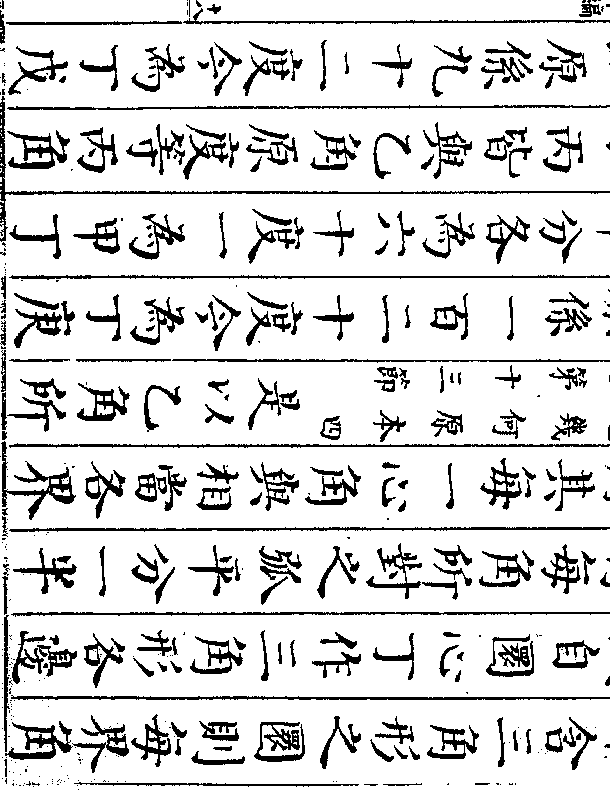 含三角形之圜則每界角
自圜心丁作三角形各邊
每角所對之弧平分一半
其每一心角與相當各界
幾何原本四
第十三節
是以乙角所
係一百二十度今為丁庚
分各為六十度一為甲丁
丙皆與乙角原度等丙角
原係九十二度今為丁戊
十八